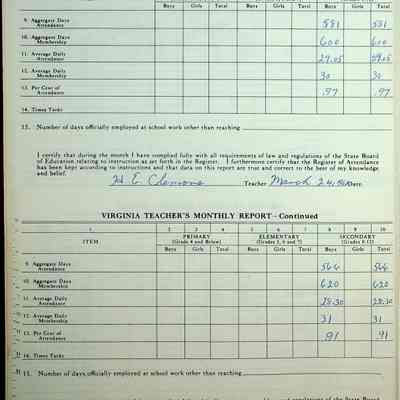 Boys Girls Total Boys Girls Total Boys Girls Total
9. Aggregate Days Attendance 581 581
10. Aggregate Days Membership 600 600
11. Average Daily Attendance 29.05 29.05
12. Average Daily Membership 30 30
13. Per Cent of Attendance .97 .97
14. Times Tardy
15. Number of days officially employed at school work other than teaching
I certify that during the month I have complied fully with all requirements of law and regulations of the State Board
of Education relating to instruction as set forth in the Register. I furthermore certify that the Register of Attendance
has been kept according to instructions and that data on this report are true and correct to the best of my knowledge
and belief.
H E Clemons Teacher March 24, Date.
VIRGINIA TEACHER'S MONTHLY REPORT—Continued
1 2 3 4 5 6 7 8 9 10
ITEM PRIMARY (Grade 4 and Below) ELEMENTARY (Grades 5, 6 and 7) SECONDARY (Grades 8-12)
Boys Girls Total Boys Girls Total Boys Girls Total
9. Aggregate Days Attendance 566 566
10. Aggregate Days Membership 620 620
11. Average Daily Attendance 28.30 28.30
12. Average Daily Membership 31 31
13. Per Cent of Attendance .91 .91
14. Times Tardy
15. Number of days officially employed at school work other than teaching